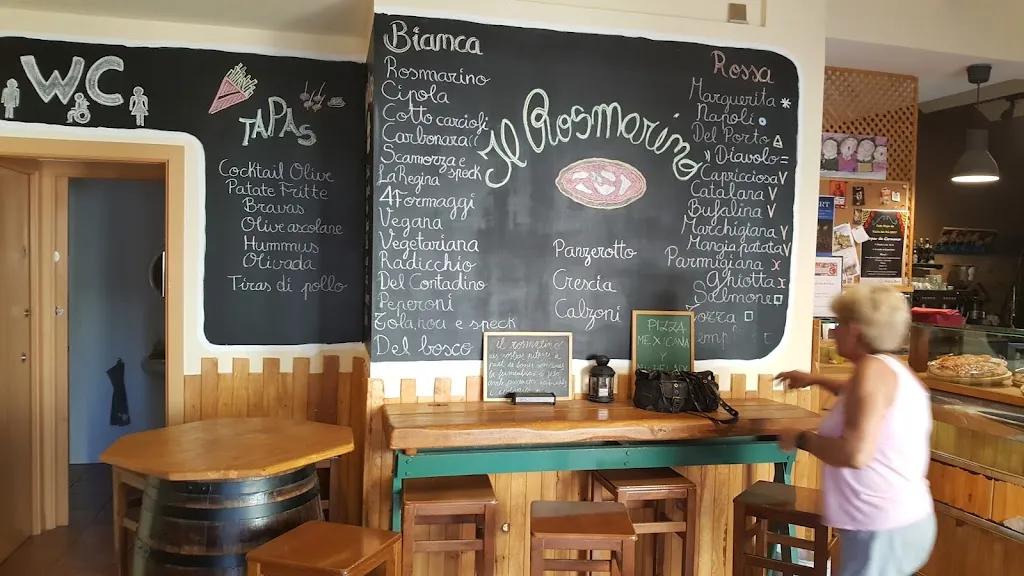 WC
TAPAS
Cocktail Olive
Patate Fritte
Bravas
Olive ascolane
Hummus
Olivada
Tiras di pollo
Bianca
Rosmarino
Cipola
Cotto carciofi
Carbonara
Scamorza e speck
La Regina
4 Formaggi
Vegana
Vegetariana
Radicchio
Del Contadino
Peperoni
e speck
Del bosco
Il Rosmarino
Panzerotto
Crescia
Calzoni
Rossa
Marguerita
Napoli
Del Porto
Diavolo
Capricciosa
Catalana
Bufalina
Marchigiana
Mangia patata
Parmigiana
Ghiotta
Salmone
il rosmarino
PIZZA
MEXICANA